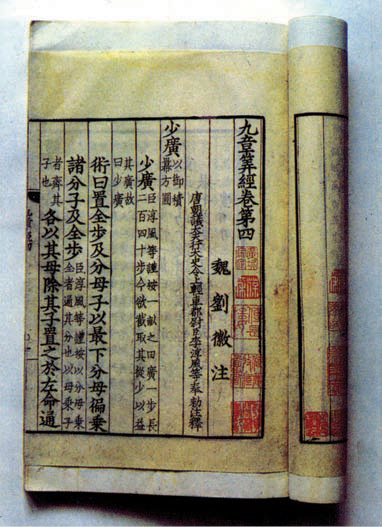 九章筭經卷第四
魏劉徽注
唐朝議大夫行太史令上輕車都尉臣李淳風等奉勑注釋
少廣以御積冪方圓
少廣臣淳風等謹按一畝之田廣一步長二百四十步今欲截取其從少以益
其廣故曰少廣
術曰置全步及分母子以最下分母徧乘
諸分子及全步臣淳風等謹按以分母乘全者通其分也以母乘子
者齊其子也各以其母除其子置之於左命通